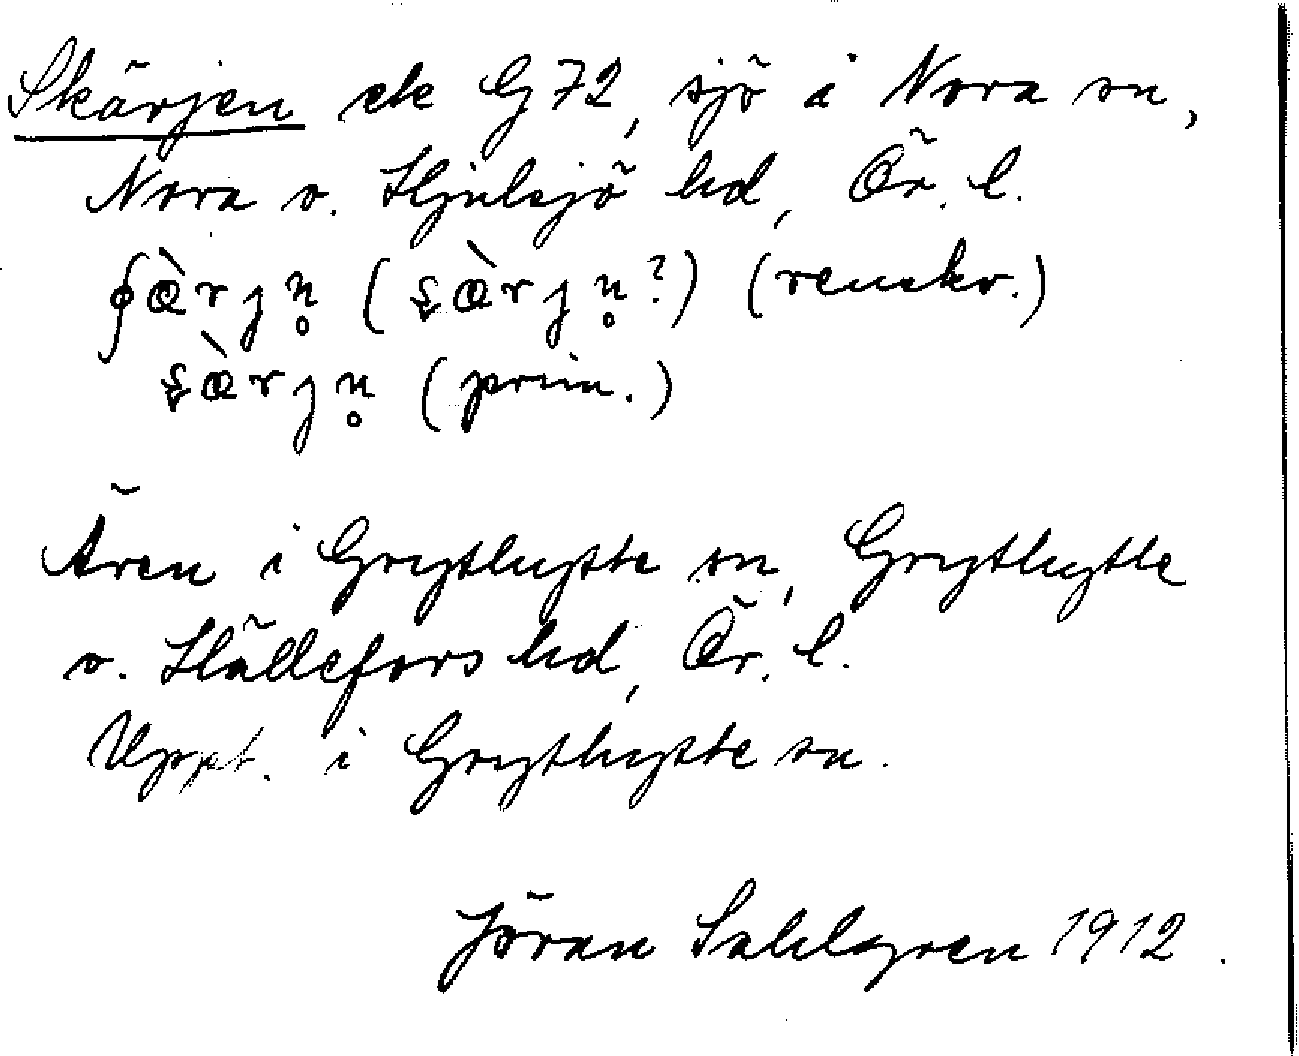 Skärjen ek G 72, sjö i Nora sn,
Nora o. Hjulsjö hd, Ör. l.
(renskr.)
(prim.)
Ären i Grythytte sn, Grythytte
o. Hällefors hd, Ör. l.
Uppt. i Grythytte sn.
Jöran Sahlgren 1912.